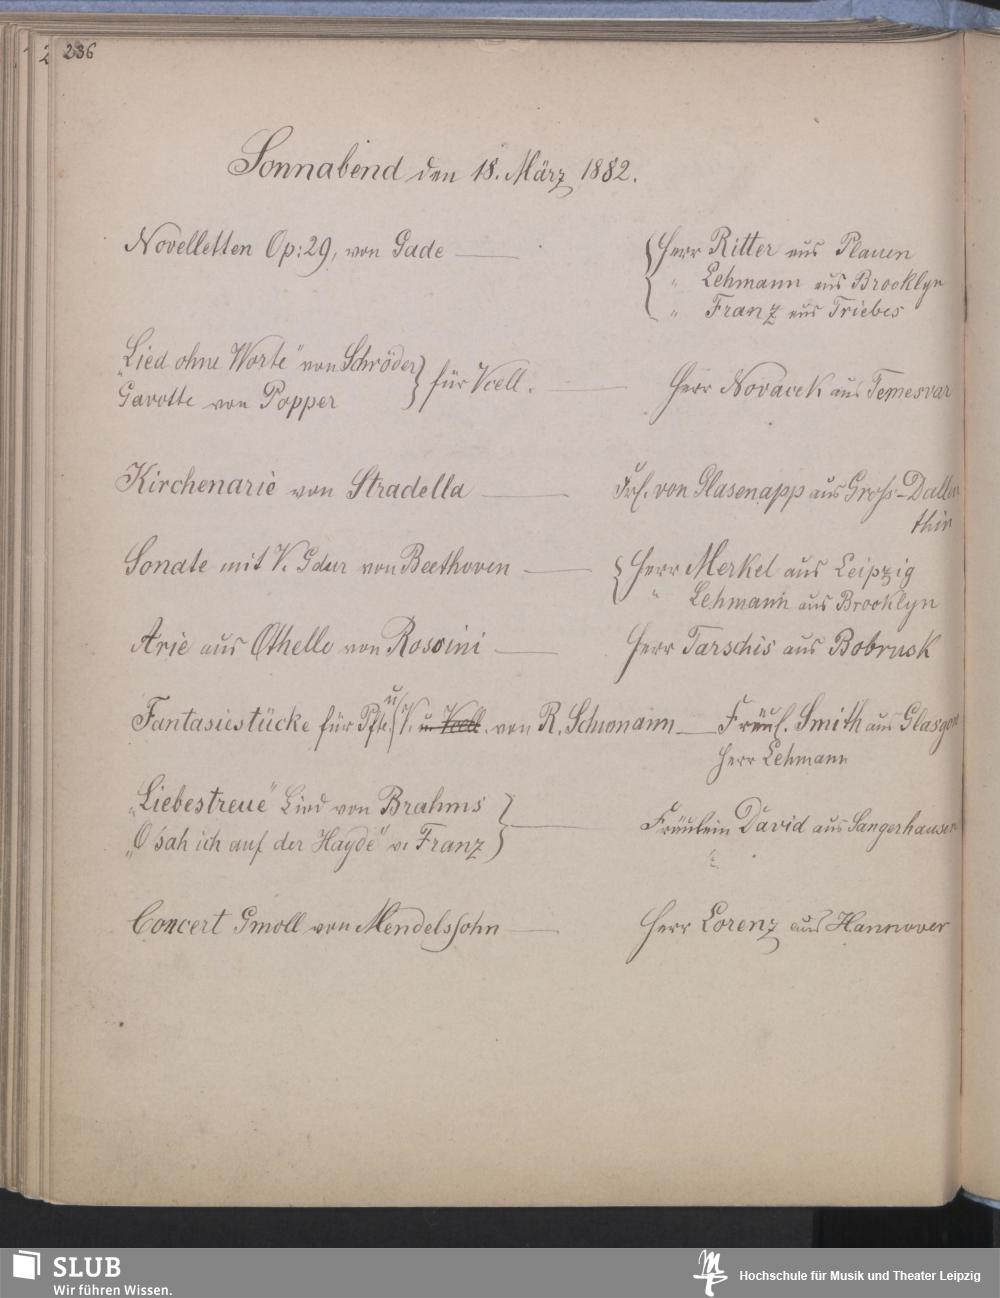 236
Sonnabend den 18. März 1882.
Novelletten Op: 29, von Gade — { Herr Ritter aus Plauen
" Lehmann aus Brooklyn
" Franz aus Triebes
„Lied ohne Worte" von Schröder } für Vcell. — Herr Novacek aus Temesvar
Gavotte von Popper
Kirchenarie von Stradella — Frl. von Glasenapp aus Gross-Dallen
thin
Sonate mit V. Gdur von Beethoven — { Herr Merkel aus Leipzig
" Lehmann aus Brooklyn
Arie aus Othello von Rossini — Herr Tarschis aus Bobrusk
Fantasiestücke für Pfte. u. V. u. Vcell. von R. Schumann — Fräul. Smith aus Glasgow
Herr Lehmann
„Liebestreue" Lied von Brahms } — Fräulein David aus Sangerhausen
„O säh ich auf der Hayde" v. Franz
Concert Gmoll von Mendelssohn — Herr Lorenz aus Hannover
SLUB
Wir führen Wissen.
Hochschule für Musik und Theater Leipzig